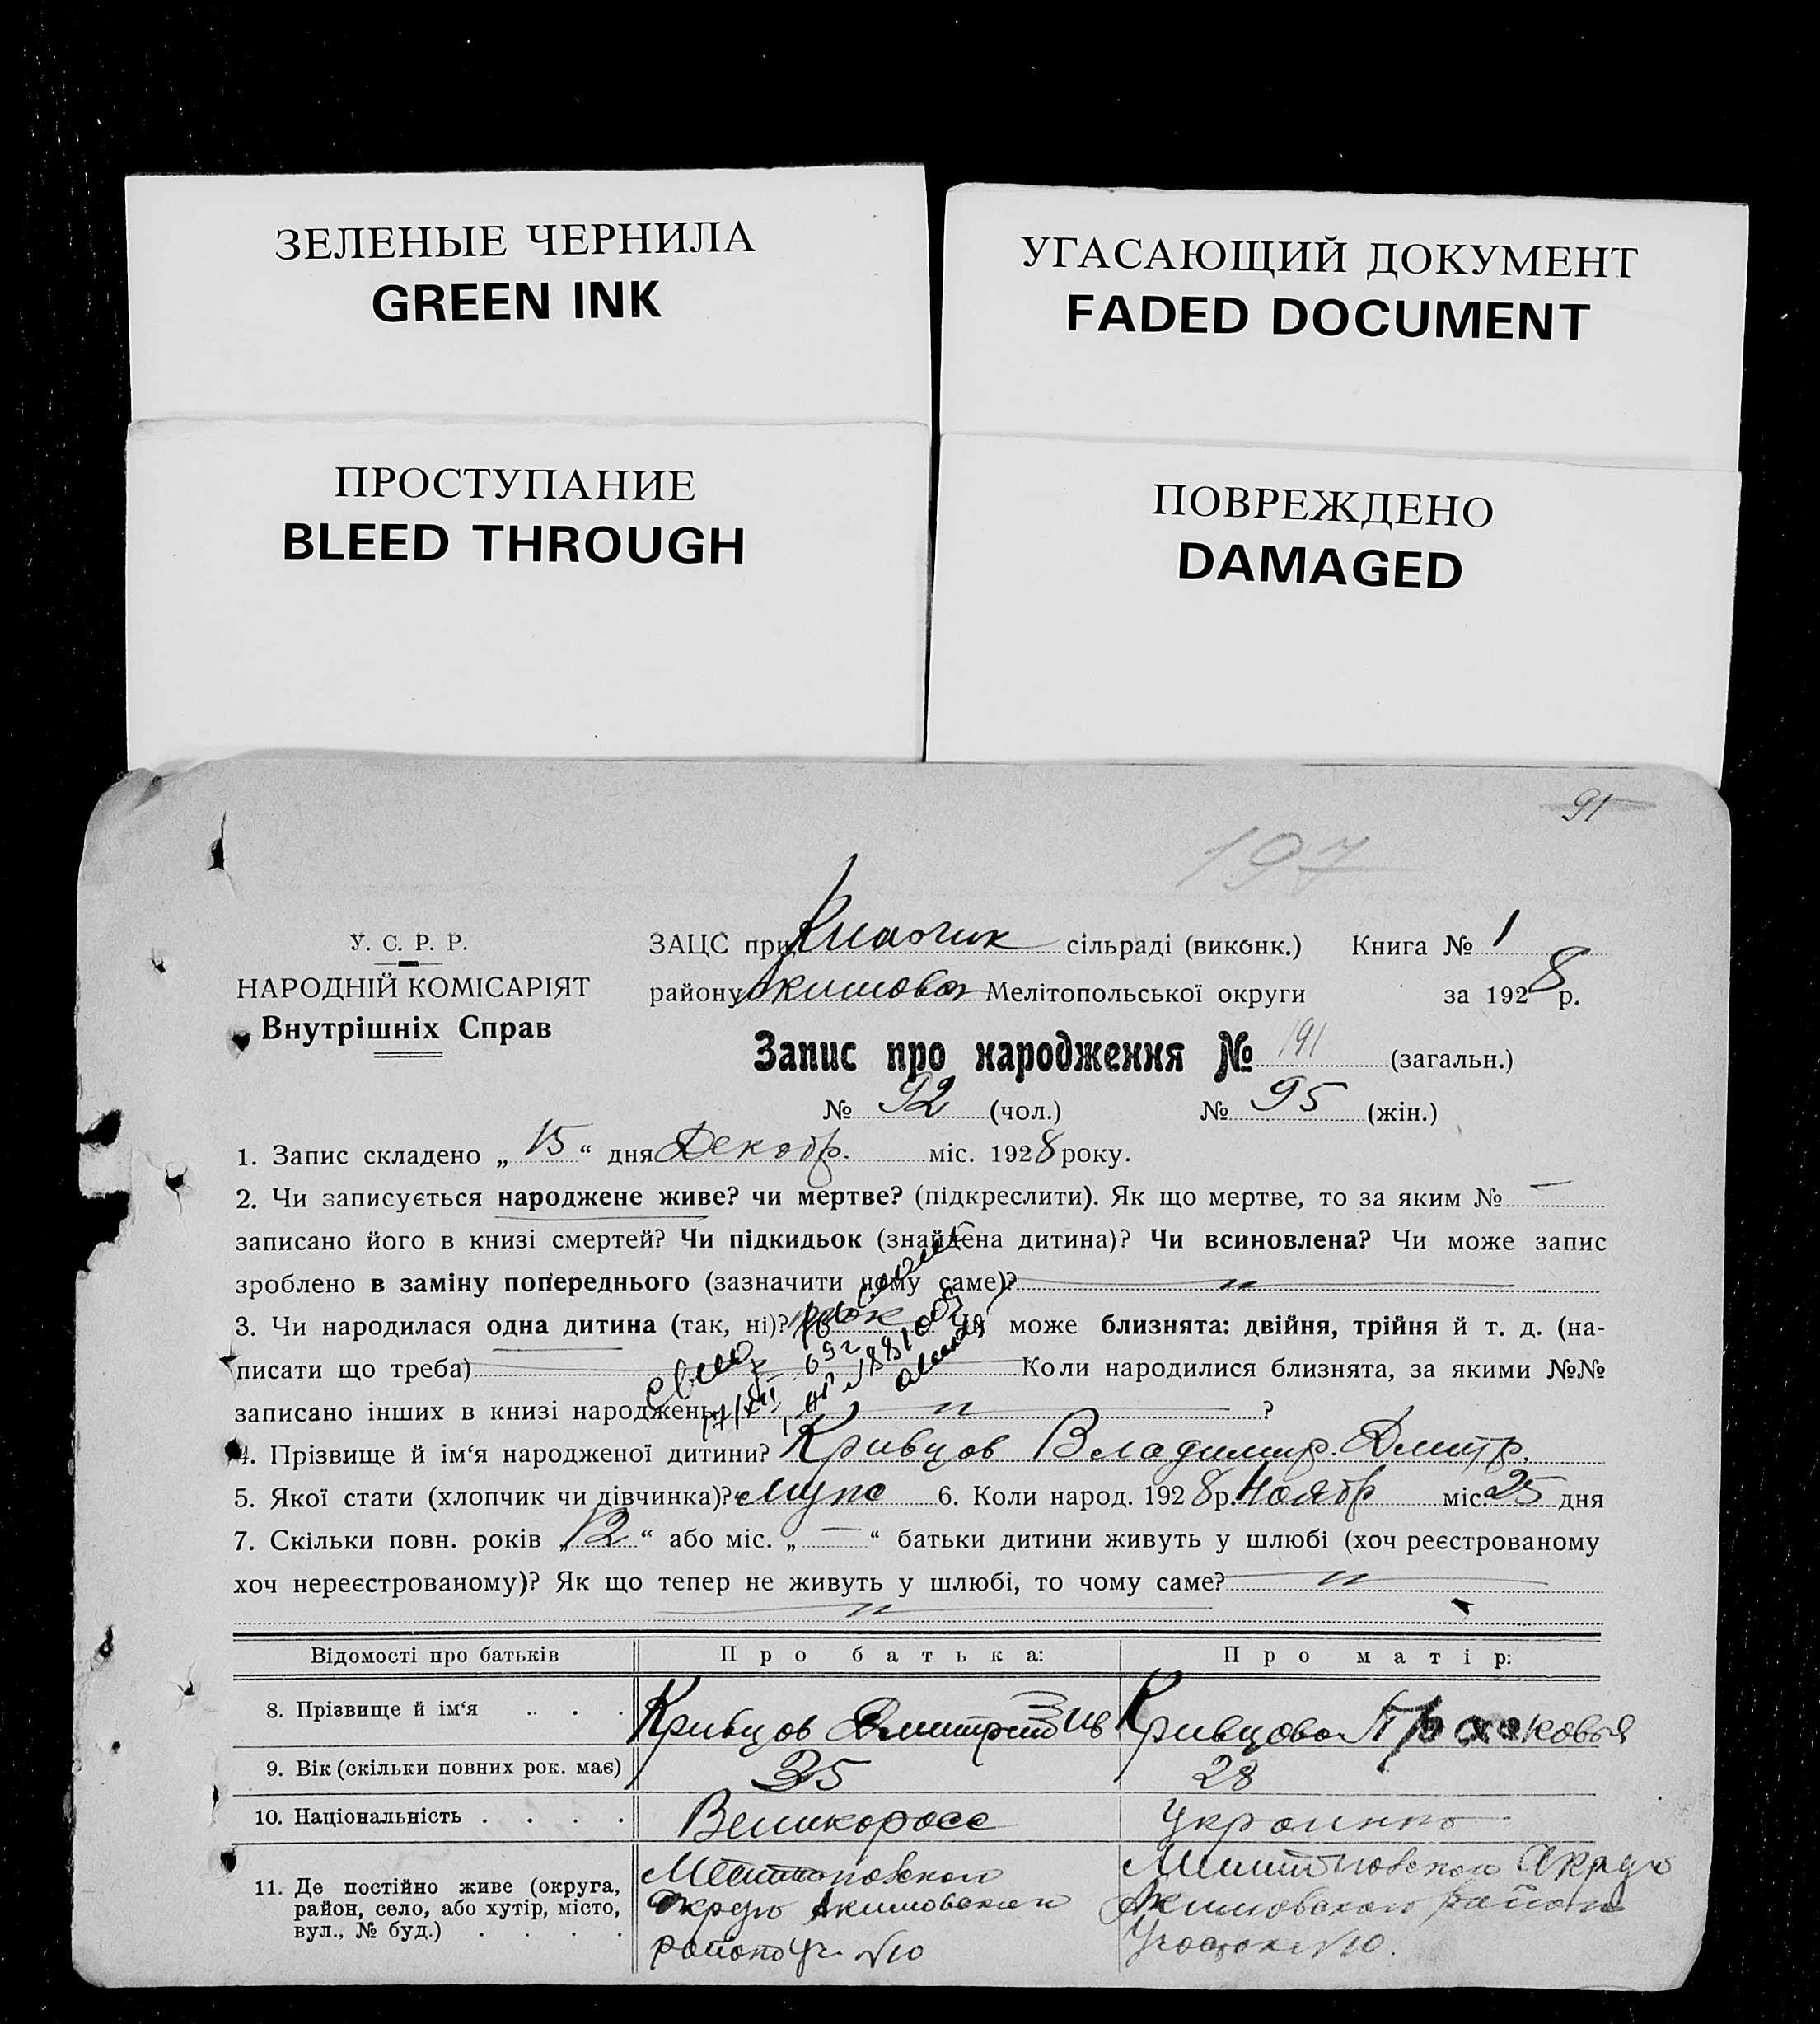 ЗЕЛЕНЫЕ ЧЕРНИЛА
GREEN INK
УГАСАЮЩИЙ ДОКУМЕНТ
FADED DOCUMENT
ПРОСТУПАНИЕ
BLEED THROUGH
ПОВРЕЖДЕНО
DAMAGED
91
197
У. С. Р. Р.
НАРОДНІЙ КОМІСАРІЯТ
Внутрішніх Справ
ЗАЦС при сільраді (виконк.) Книга № 1
району Акимовск Мелітопольської округи за 1928 р.
Запис про народження № 191 (загальн.)
№ 92 (чол.) № 95 (жін.)
1. Запис складено „ 15 “ дня Декабр. міс. 1928 року.
2. Чи записується народжене живе? чи мертве? (підкреслити). Як що мертве, то за яким № —
записано його в книзі смертей? Чи підкидьок (знайдена дитина)? Чи всиновлена? Чи може запис
зроблено в заміну попереднього (зазначити чому саме)? "
3. Чи народилася одна дитина (так, ні)? Чи може близнята: двійня, трійня й т. д. (на-
писати що треба) Коли народилися близнята, за якими №№
записано інших в книзі народжень "?
4. Прізвище й ім'я народженої дитини? Кривцов Владимир. Дмитр.
5. Якої стати (хлопчик чи дівчинка)? 6. Коли народ. 1928 р. Ноябр міс. 25 дня
7. Скільки повн. років „ 12 “ або міс. „ — “ батьки дитини живуть у шлюбі (хоч реєстрованому
хоч нереєстрованому)? Як що тепер не живуть у шлюбі, то чому саме? "
"
Відомості про батьків Про батька: Про матір:
8. Прізвище й ім'я . . . Кривцов Дмитрий Кривцова Прасковья
9. Вік (скільки повних рок. має) 35 28
10. Національність . . . . Великоросс Украинка
11. Де постійно живе (округа,
район, село, або хутір, місто,
вул., № буд.) . . . .
Округа Акимовский
района уч. №10
Округа
Акимовского района
Участок №10.